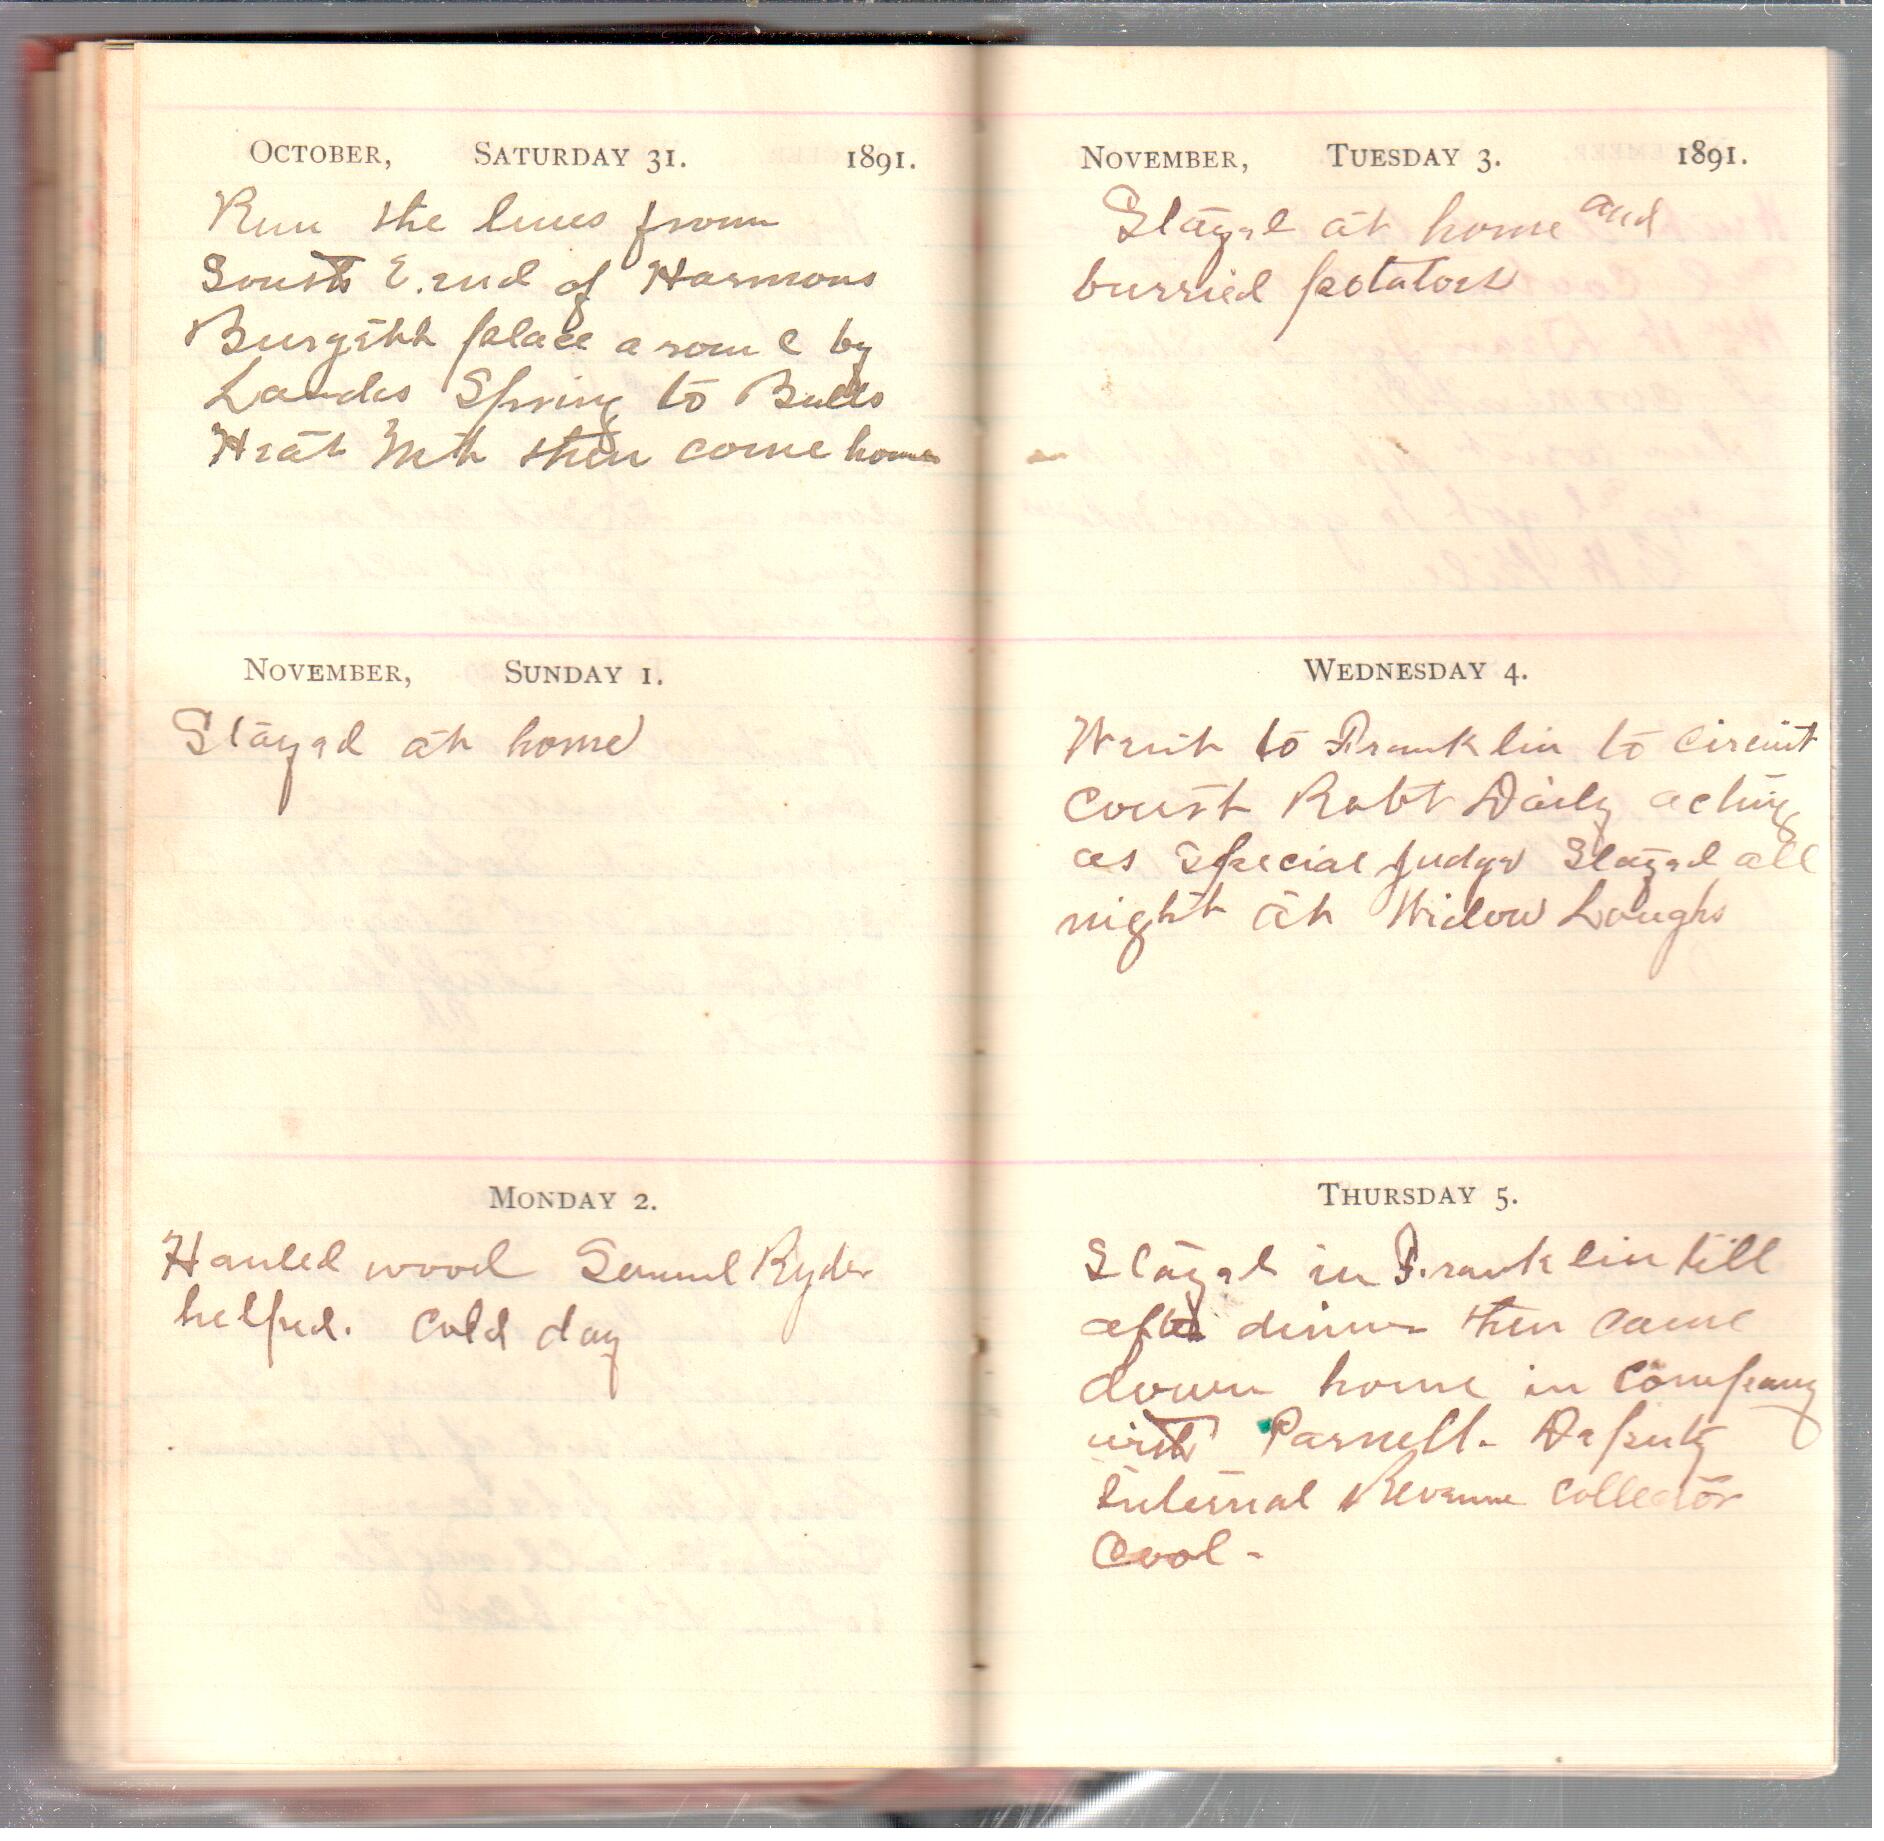 OCTOBER, SATURDAY 31. 1891.
Run the lines from
South E. end of Harmons
place around by
Landes Spring to Bulls
Head Mt then come home
NOVEMBER, SUNDAY 1.
Stayed at home
MONDAY 2.
Hauled wood Samuel Ryder
helped. Cold day
NOVEMBER, TUESDAY 3. 1891.
Stayed at home and
burried potatoes
WEDNESDAY 4.
Went to Franklin to Circuit
Court Robt Daily acting
as Special Judge Stayed all
night at Widow Loughs
THURSDAY 5.
Stayed in Franklin till
after dinner then came
down home in Company
with Parnell. Deputy
Internal Revenue Collector
Cool -